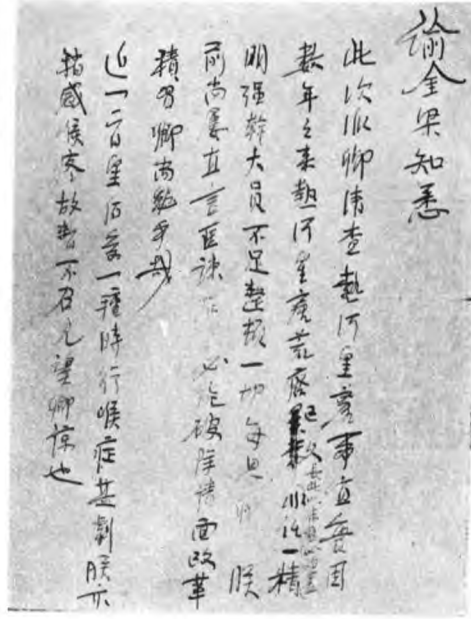 諭金梁知悉
此次派卿清查熱河皇產事宜實因
數年之来熱河皇產荒廢已久 非派一精
明強幹大員不足整頓一切每思 朕
前尚屢直言匡諫 必能破除情面改革
積弊卿尚勉乎哉
近一二日皇后受一種時行喉症甚劇朕亦
稍感候寒故暫不召見望卿諒也